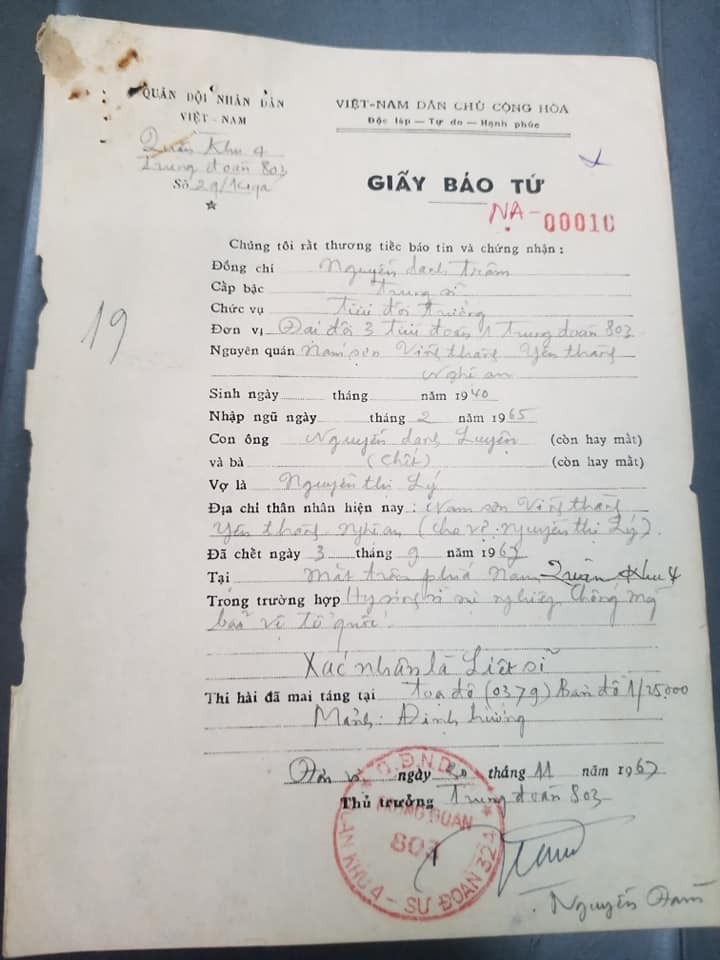 QUÂN ĐỘI NHÂN DÂN
VIỆT - NAM
Quân Khu 4
Trung đoàn 803
Số 29/
VIỆT-NAM DÂN CHỦ CỘNG HÒA
Độc lập — Tự do — Hạnh phúc
GIẤY BÁO TỬ
NA - 00010
Chúng tôi rất thương tiếc báo tin và chứng nhận :
19
Đồng chí Nguyễn danh trâm
Cấp bậc trung sĩ
Chức vụ tiểu đội trưởng
Đơn vị Đại đội 3 tiểu đoàn 1 trung đoàn 803
Nguyên quán Nam sơn Vĩnh thành Yên thành
Nghệ an
Sinh ngày tháng năm 1940
Nhập ngũ ngày tháng 2 năm 1965
Con ông Nguyễn danh Luyện (còn hay mất)
và bà (chết) (còn hay mất)
Vợ là Nguyễn thị Lý
Địa chỉ thân nhân hiện nay : Nam sơn Vĩnh thành
Yên thành Nghệ an (cho vợ. Nguyễn thị Lý).
Đã chết ngày 3 tháng 9 năm 1967
Tại mặt trận phía Nam Quân khu 4
Trong trường hợp Hy sinh vì sự nghiệp Chống Mỹ
bảo vệ tổ quốc.
Xác nhận là Liệt sĩ
Thi hài đã mai táng tại tọa độ (0379) Bản đồ 1/25.000
Mảnh: Đinh hương
Đơn vị ngày 30 tháng 11 năm 1967
Thủ trưởng Trung đoàn 803
Q.Đ.N.D
TRUNG ĐOÀN
803
QUÂN KHU 4 - SƯ ĐOÀN 324
Nguyễn